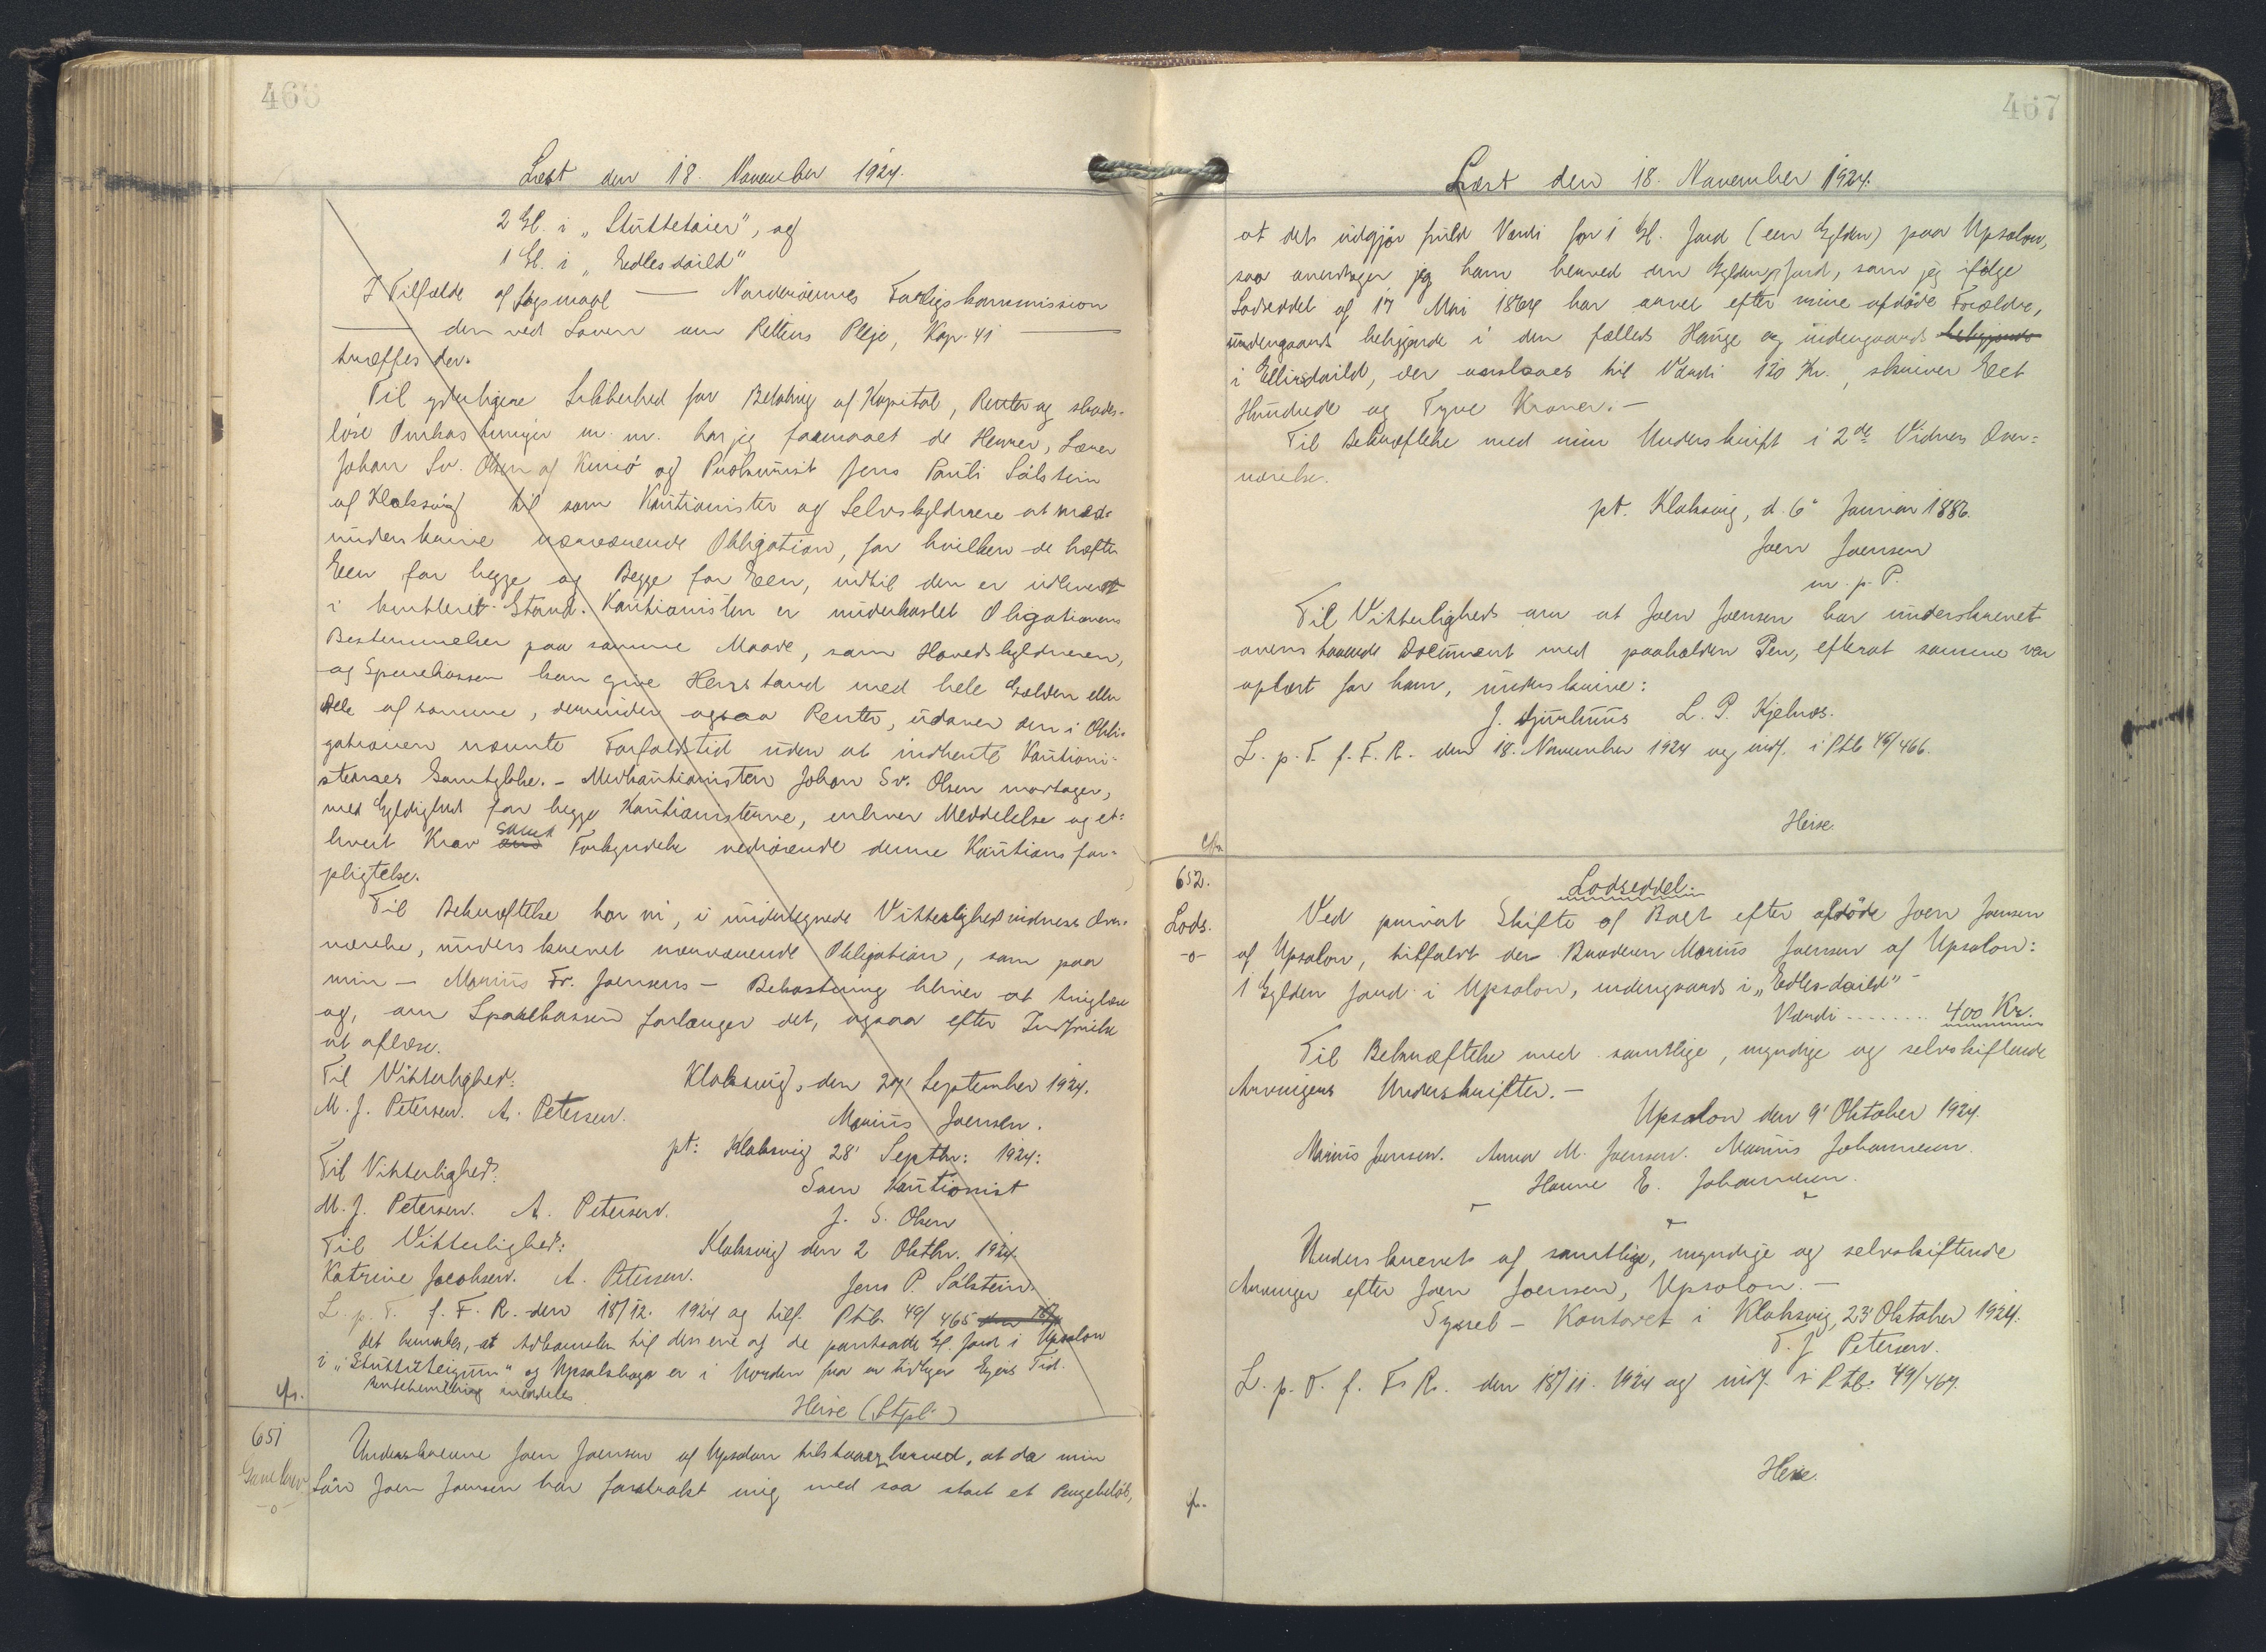 466
Læst den 18. November 1924.
2 Gl. i „Stuttetaier", og
1 Gl. i „Eedlesdaild"
I Tilfælde af Søgsmaal — Norderøernes Forligskommission
— den ved Loven om Rettens Pleje, Kap. 41
træffes der.
Til yderligere Sikkerhed for Betaling af Kapital, Renter og skades-
løse Omkostninger m. m. har jeg formaaet de Herrer, Lærer
Johan Sv. Olsen af Kunø og Prokurist Jens Pauli Sólstein
af Klaksvig til som Kautionister og Selvskyldnere at med-
underskrive nærværende Obligation, for hvilken de hæfter
Een for begge og Begge for Een, indtil den er udleveret
i kvitteret Stand. Kautionisten er underkastet Obligationens
Bestemmelser paa samme Maade, som Hovedskyldneren,
og Sparekassen kan give Henstand med hele Gælden eller
Dele af samme, derunder ogsaa Renter, udover den i Obli-
gationen nævnte Forfaldstid uden at indhente Kautioni-
sternes Samtykke. - Medkautionisten Johan Sv. Olsen modtager,
med Gyldighed for begge Kautionisterne, enhver Meddelelse og et-
hvert Krav samt Forkyndelse vedrørende denne Kautionsfor-
pligtelse.
Til Bekræftelse har vi, i undertegnede Vitterlighedsvidners Over-
værelse, underskrevet nærværende Obligation, som paa
min - Marius Fr. Joensens - Bekostning bliver at tinglæse
og, om Sparekassen forlanger det, ogsaa efter Indfrielse
at aflæse.
Til Vitterlighed: Klaksvig, den 27' September 1924.
M. J. Petersen. A. Petersen. Marius Joensen.
Til Vitterlighed: pt: Klaksvig 28' Septbr: 1924:
Som Kautionist
M. J. Petersen. A. Petersen. J. S. Olsen
Til Vitterlighed: Klaksvig den 2 Oktbr. 1924.
Katrine Jacobsen. A. Petersen. Jens P. Sólstein.
L. p. T. f. F. R. den 18/12. 1924 og tilf. Ptb. 49/465
Det bemærkes, at Adkomsten til den ene af de pantsatte Gl. Jord i Upsalon
i „Stuttuteigum" og Upsalshaga er i Orden fra en tidligere Ejers Tid.
cfr.
Heise (Stpl.)
651
Gavebrev
-o-
Underskrevne Joen Joensen af Upsalon tilstaaer herved, at da min
Søn Joen Joensen har forstrakt mig med saa stort et Pengebeløb,
467
Læst den 18. November 1924.
at det udgjør fuld Værdi for 1 Gl. Jord (een Gylden) paa Upsalon,
saa overdrager jeg ham herved den Gylden Jord, som jeg ifølge
Lodseddel af 17 Mai 1864 har arvet efter mine afdøde Forældre,
undengaards beliggende i den fælleds Hauge og indengaards beliggende
i Ellisdaild, der anslaaes til Værdi 120 Kr., skriver Eet
Hundrede og Tyve Kroner. -
Til Bekræftelse med min Underskrift i 2de Vidners Over-
værelse.
pt. Klaksvig, d. 6' Januar 1886.
Joen Joensen
m. p. P.
Til Vitterlighed om at Joen Joensen har underskrevet
ovenstaaende Document med paaholden Pen, efterat samme var
oplæst for ham, underskrive:
J. Djurhuus L. P. Kjelnæs.
L. p. T. f. F. R. den 18. November 1924 og indf. i Ptb 49/466.
Heise.
cfr.
652.
Lods.
-o-
Lodseddel.
Ved privat Skifte af Boet efter afdøde Joen Joensen
af Upsalon, tilfaldt der Bonden Marius Joensen af Upsalon:
1 Gylden Jord i Upsalon, indengaards i „Eedles-daild" -
Værdi ........ 400 Kr.
Til Bekræftelse med samtlige, myndige og selvskiftende
Arvingers Underskrifter. -
Upsalon den 9' Oktober 1924.
Marius Joensen. Anna M. Joensen. Marius Johannesen.
Hanne E. Johannesen.
Underskrevet af samtlige, myndige og selvskiftende
Arvinger efter Joen Joensen, Upsalon. -
Syssel-Kontoret i Klaksvig, 23' Oktober 1924.
T. J. Petersen.
L. p. T. f. F. R. den 18/11. 1924 og indf. i Ptb. 49/467.
Heise.
cfr.